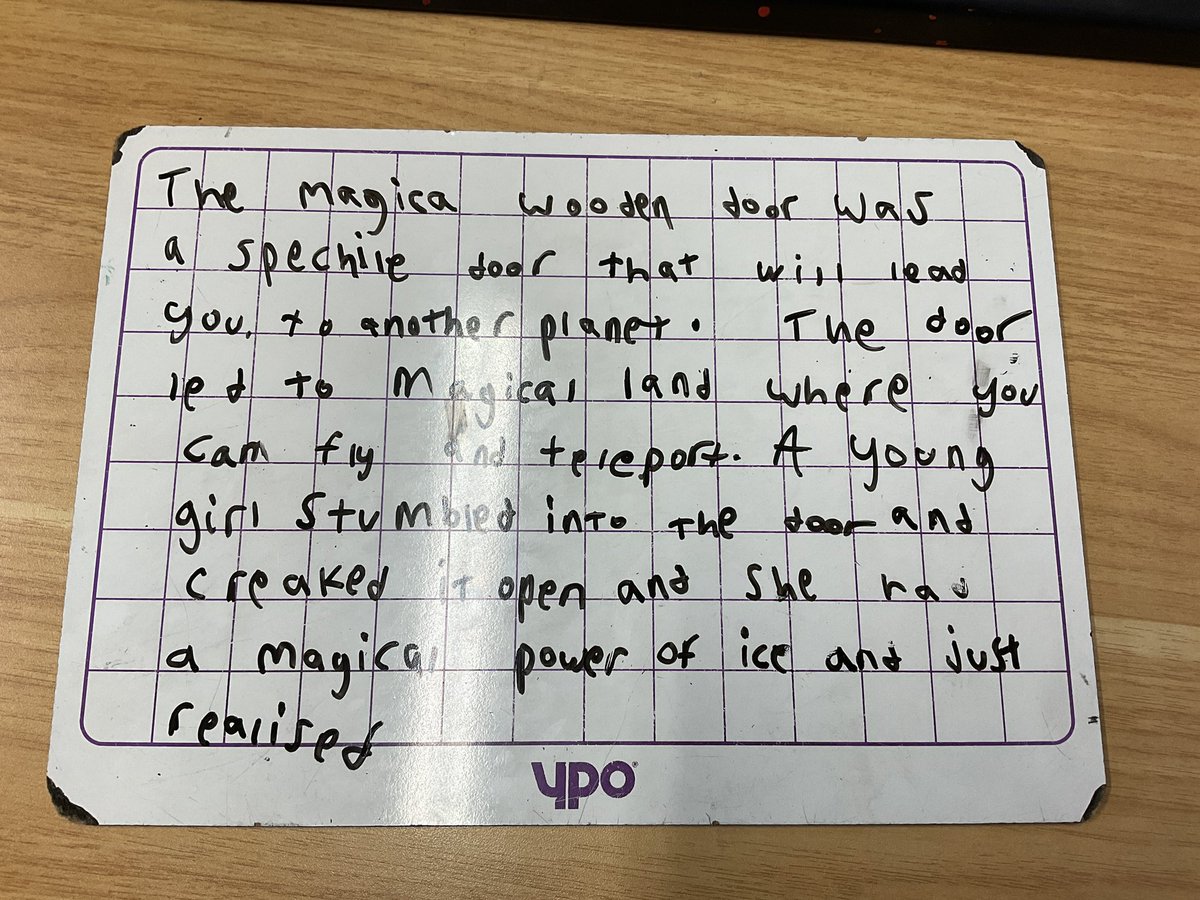 The magica wooden door was
a spechile door that will lead
you. to another planet. The door
led to Magical land where you
cam fly and teleport. A young
girl Stumbled into the door and
creaked it open and she had
a magical power of ice and just
realised
ypo